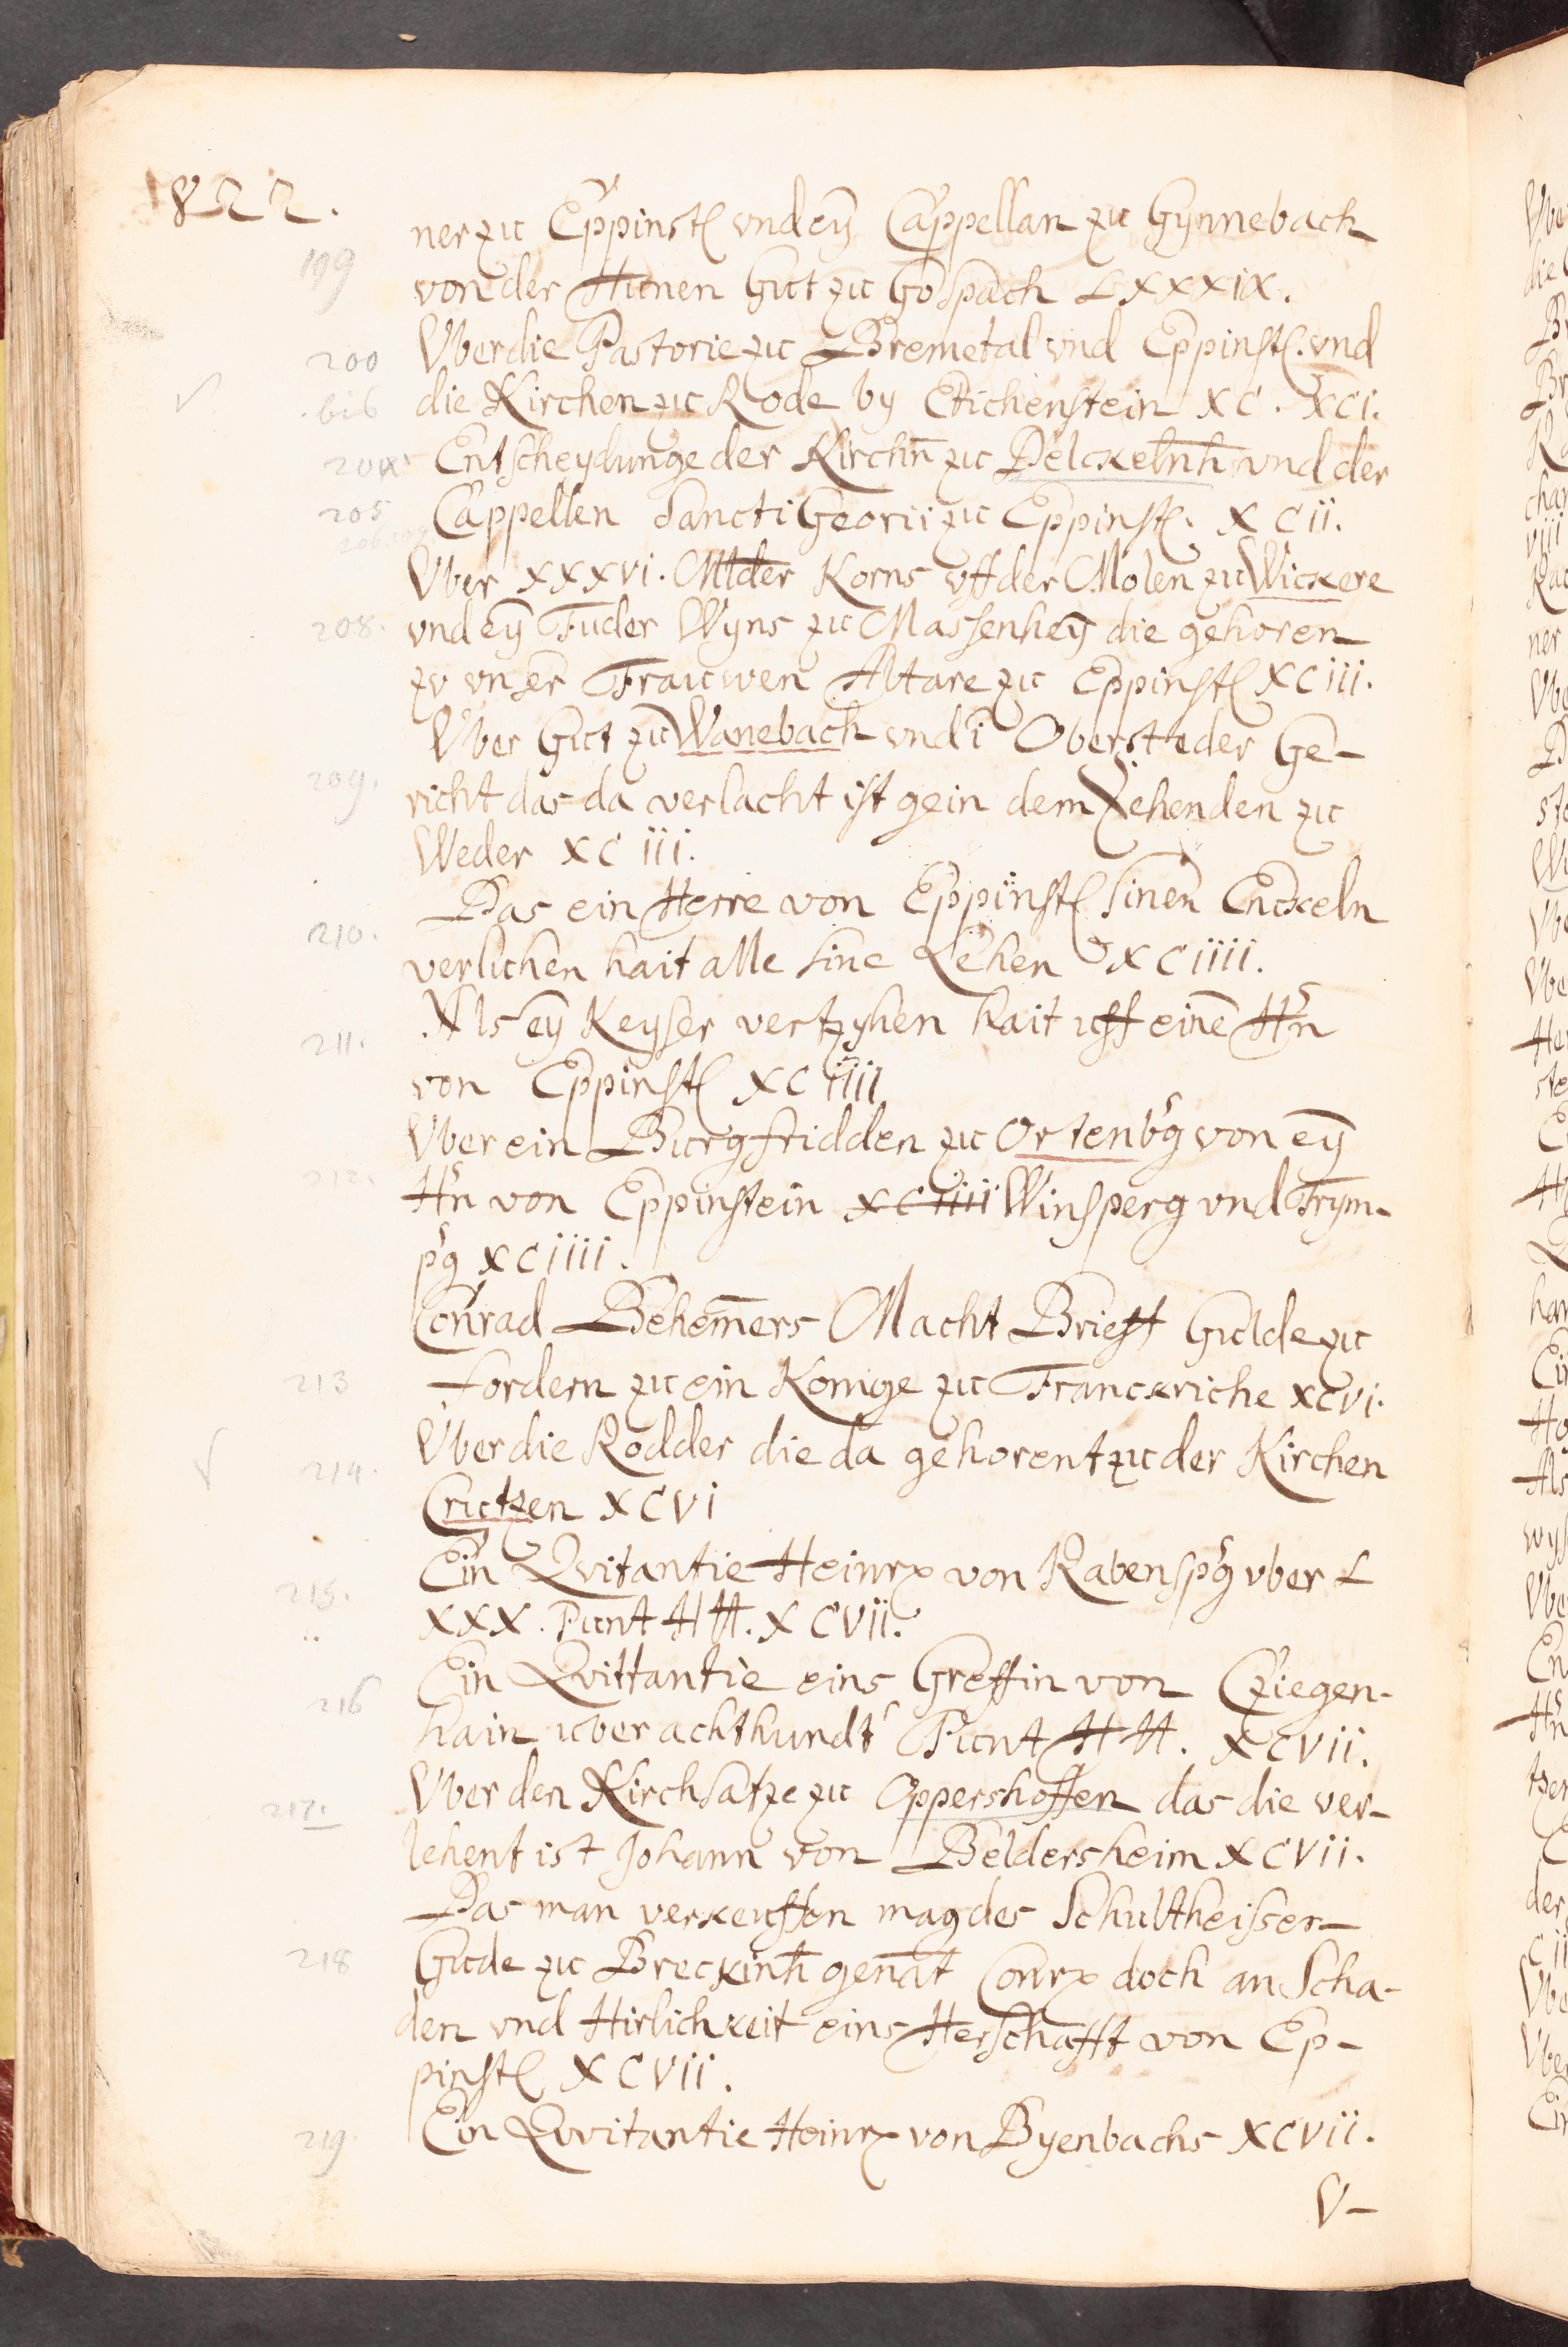 1822.
ner zu Eppinst vnd eȳ Cappellan zu Gynnebach
199
von der Hunen Gut zu Gospach LXXXIX.
200
Vber die Pastorie zu Bremetal vnd Eppinst. vnd
bis
die Kirchen zu Rode by Etichenstein XC. XCI.
204
Entscheydunge der Kirchn̄ zu Delckelnh̄ vnd der
205
Cappellen Sancti Georii zu Eppinst. XCII.
Vber XXXVI. Mlder Korns vff der Molen zu Wickere
208.
vnd eȳ Fuder Wyns zu Massenheȳ die gehoren
zu vnser Frauwen Altare zu Eppinst XCIII.
Vber Gut zu Wanebach vnd ī Obersteder Ge-
209.
richt das da verlacht ist gein dem Zehenden zu
Weder XCIII.
Das ein Herre von Eppinst sinen Enckeln
210.
verlichen hait alle sine Lehen XCIIII.
Als eȳ Keyser vertzyhen hait uff eine Hn
211.
von Eppinst XCIIII
Vber ein Burgfridden zu Ortenbg von eȳ
212.
Hn von Eppinstein XCIIII Winsperg vnd Trym-
pg XCIIII.
Conrad Behem̄ers Macht Brieff Gulde zu
213
fordern zu ein Konige zu Franckriche XCVI.
Vber die Rodder die da gehorent zu der Kirchen
214.
Crutzen XCVI
Ein Qvitantie Heinrx von Rabenspg vber L
215.
XXX. Punt HH. XCVII.
Ein Qvittantie eins Greffin von Cziegen-
216
hain uber achthundt Punt HH. XCVII.
Vber den Kirchsatze zu Oppershoffen das die ver-
217.
lehent ist Johann von Beldersheim XCVII.
Das man verkeuffen mag des Schultheisser
218
Gude zu Breckinh̄ genāt Conrx doch an Scha-
den vnd Hirlichkeit eins Herschafft von Ep-
pinst XCVII.
219.
Ein Qvitantie Heinrx von Byenbachs XCVII.
V-